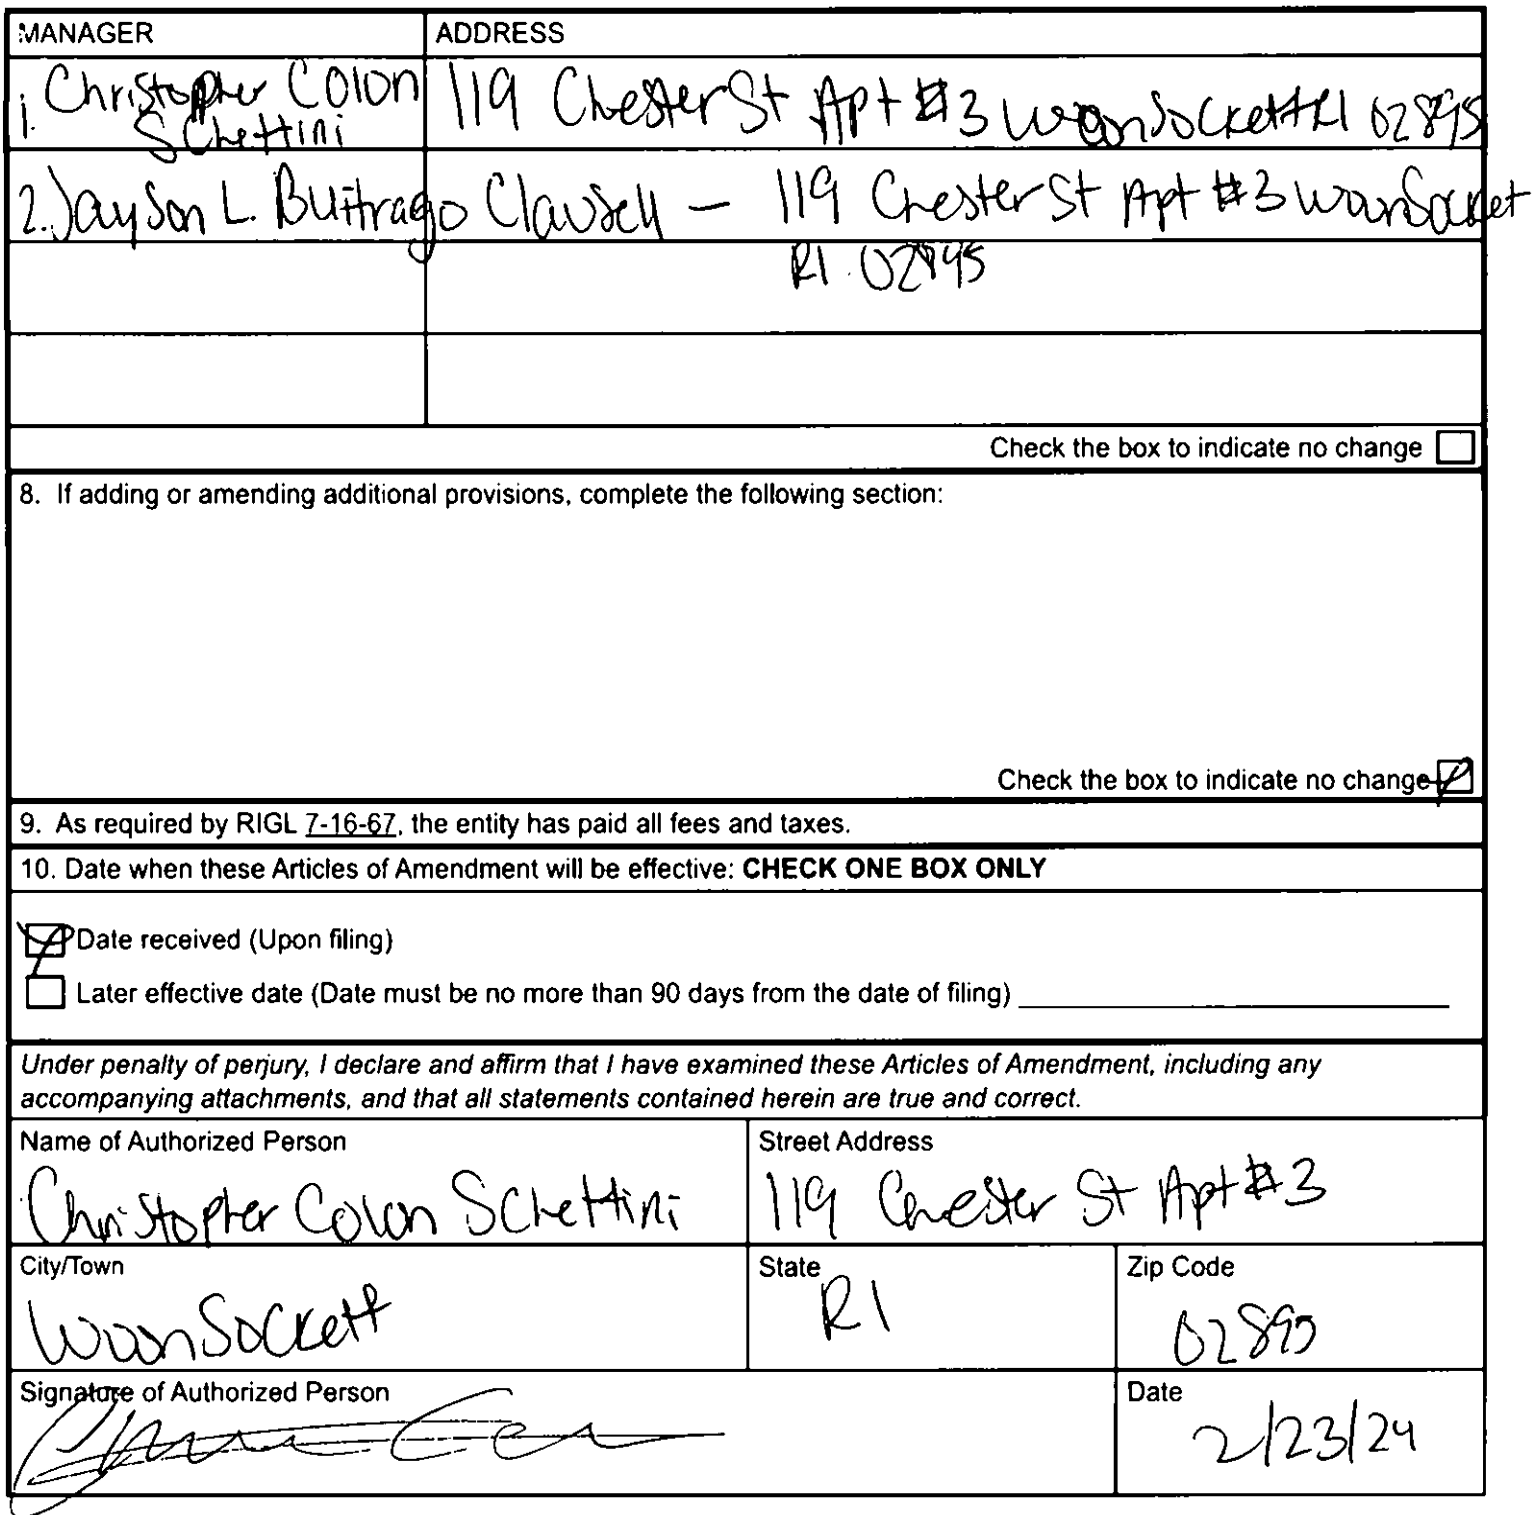 MANAGER ADDRESS
1. Christopher Colon 119 Chester St Apt #3 Woonsockett RI 02895
Schettini
2. Jayson L. Buitrago Clausell - 119 Chester St Apt #3 Woonsocket
RI 02895
Check the box to indicate no change
8. If adding or amending additional provisions, complete the following section:
Check the box to indicate no change
9. As required by RIGL 7-16-67, the entity has paid all fees and taxes.
10. Date when these Articles of Amendment will be effective: CHECK ONE BOX ONLY
Date received (Upon filing)
Later effective date (Date must be no more than 90 days from the date of filing)
Under penalty of perjury, I declare and affirm that I have examined these Articles of Amendment, including any
accompanying attachments, and that all statements contained herein are true and correct.
Name of Authorized Person Street Address
Christopher Colon Schettini 119 Chester St Apt #3
City/Town State Zip Code
Woonsockett RI 02895
Signature of Authorized Person Date
2/23/24